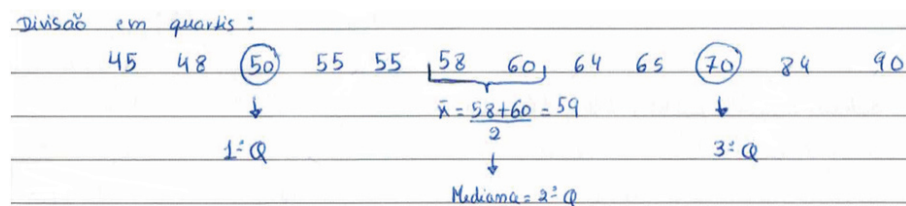 Divisão em quartis:
45 48 50 55 55 58 60 64 65 70 84 90
x̄ = 58+60 = 59
2
1º Q
3º Q
Mediana = 2º Q